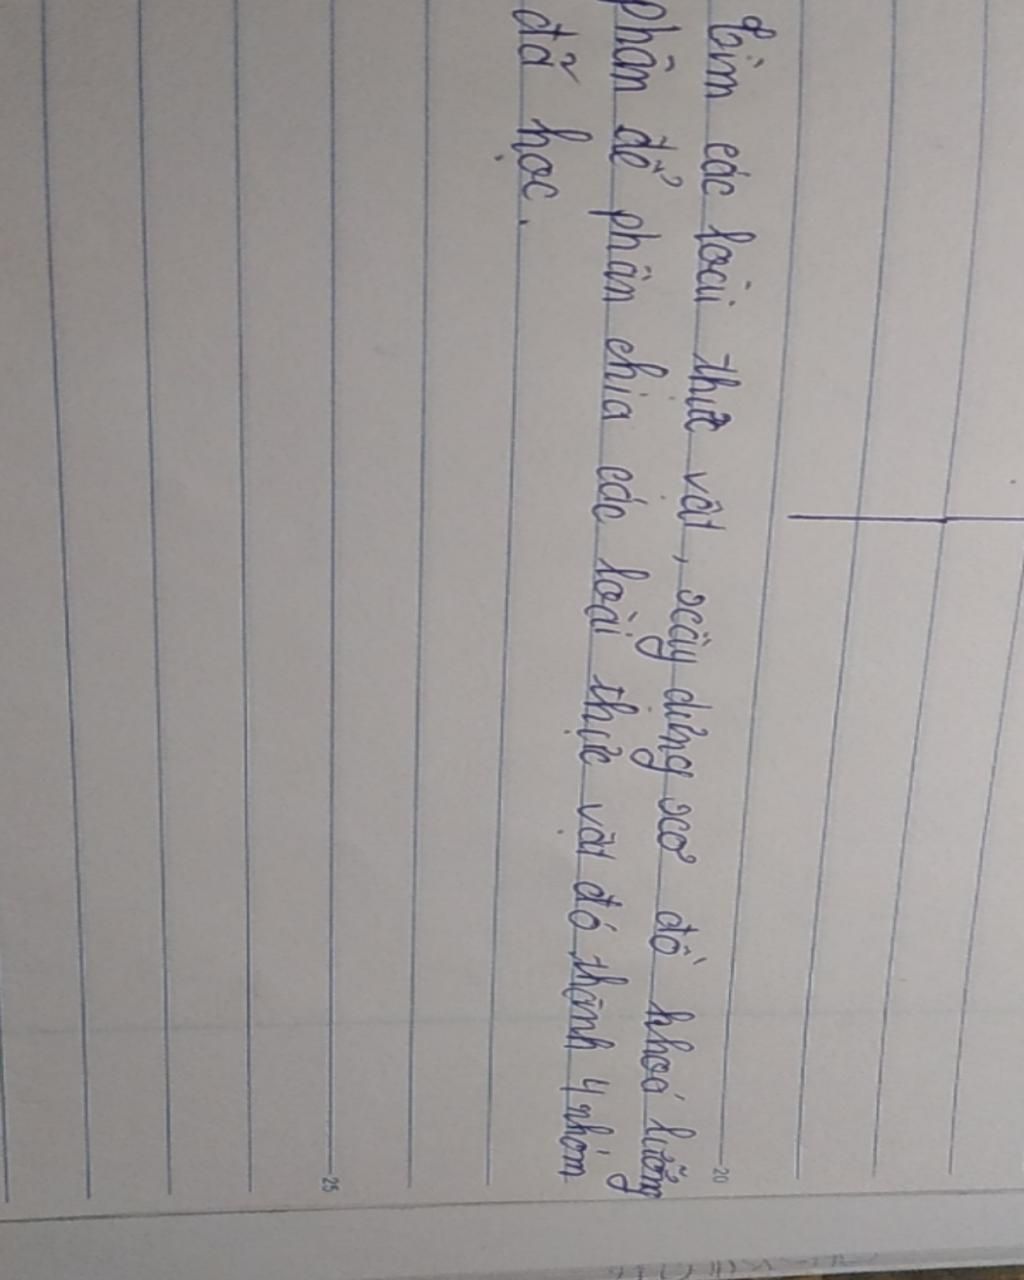 Tìm các loài thực vật, xây dựng xơ đồ khoá lưỡng
phân để phân chia các loài thực vật đó thành 4 nhóm
đã học.
20
25